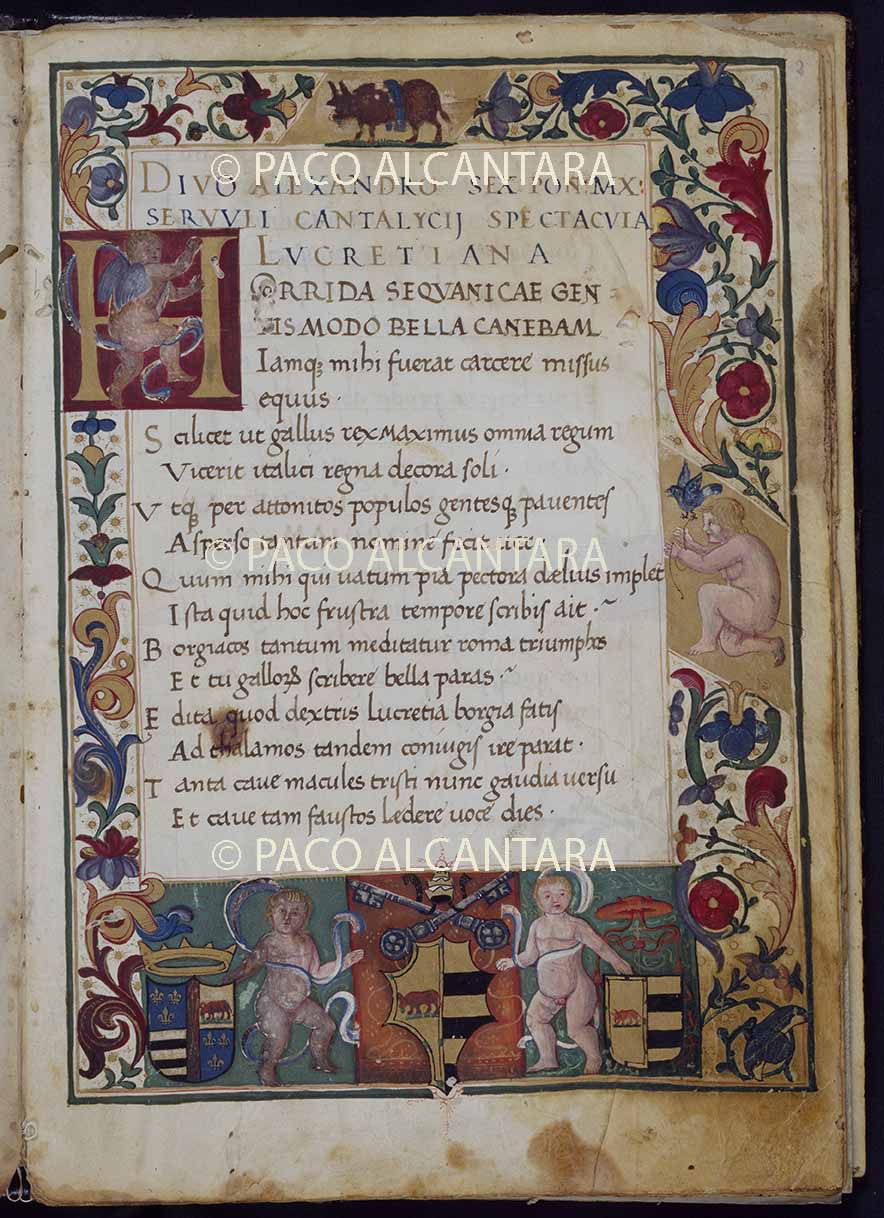 © PACO ALCANTARA
DIVO ALEXANDRO SEX PON: MX:
SERVVLI CANTALYCIJ SPECTACVLA
LVCRETIANA
HORRIDA SEQVANICAE GEN=
TIS MODO BELLA CANEBAM
Iamq; mihi fuerat carcere missus
equus ·
Scilicet ut gallus rex maximus omnia regum
Vicerit italici regna decora soli ·
Vtq; per attonitos populos gentesq; pauentes
Asperso tantum nomine fecit iter ·
© PACO ALCANTARA
Quum mihi qui uatum pia pectora dælius implet
Ista quid hoc frustra tempore scribis ait ·
Borgiacos tantum meditatur roma triumphos
Et tu galloꝝ scribere bella paras ·
Edita quod dextris Lucretia borgia fatis
Ad thalamos tandem coniugis ire parat ·
Tanta caue macules tristi nunc gaudia uersu
Et caue tam faustos Ledere uoce dies ·
© PACO ALCANTARA